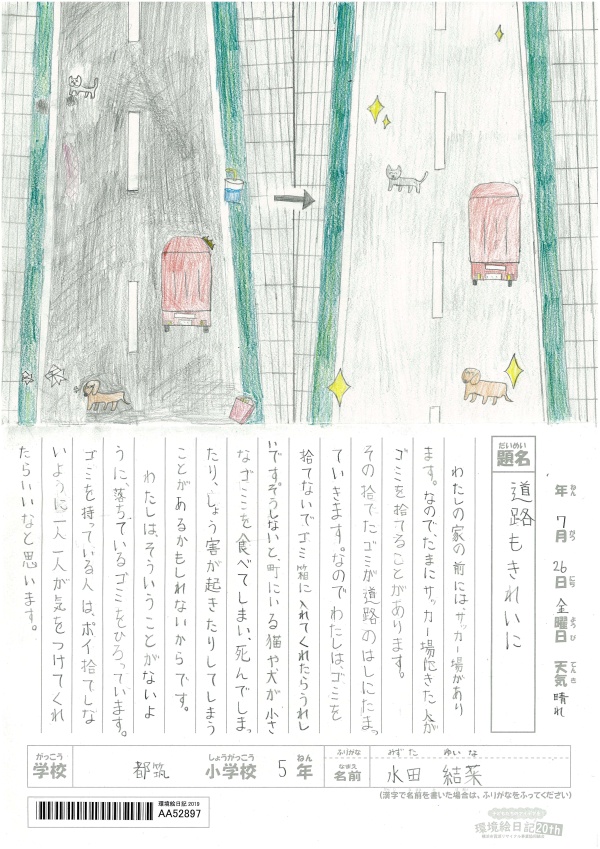 年 7月 26日 金曜日 天気 晴れ
ねん がつ にち ようび てんき
だいめい
題名
道路もきれいに
わたしの家の前には、サッカー場があり
ます。なので、たまにサッカー場にきた人が
ゴミを捨てることがあります。
その捨てたゴミが道路のはしにたまっ
ていきます。なのでわたしは、ゴミを
捨てないでゴミ箱に入れてくれたらうれし
いです。そうしないと、町にいる猫や犬が小さ
なゴミこを食べてしまい、死んでしまっ
たり、しょう害が起きたりしてしまう
ことがあるかもしれないからです。
わたしは、そういうことがないよ
うに、落ちているゴミをひろっています。
ゴミを持っている人は、ポイ捨てしな
いように一人一人が気をつけてくれ
たらいいなと思います。
がっこう しょうがっこう ねん ふりがな みずた ゆいな
学校 都筑 小学校 5年 なまえ 名前 水田 結菜
(漢字で名前を書いた場合は、ふりがなをふってください)
環境絵日記2019
AA52897
環境絵日記20th